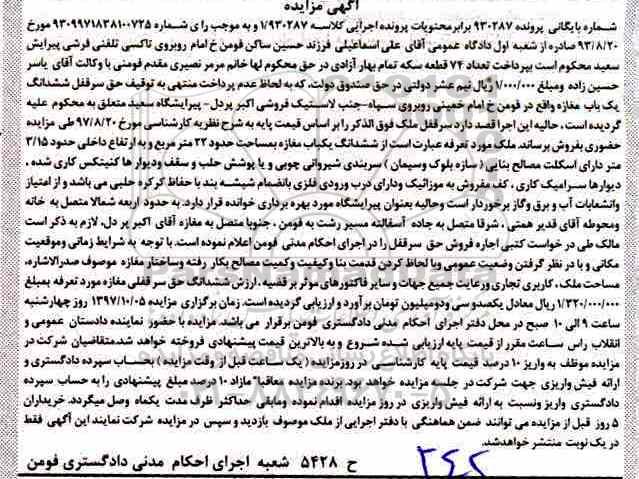 آگهی مزایده
شماره بایگانی پرونده ۹۳۰۲۸۷ برابر محتویات پرونده اجرایی کلاسه ۱/۹۳۰۲۸۷ و به موجب رای شماره ۹۳۰۹۹۷۱۸۳۸۱۰۰۷۲۵ مورخ
۹۳/۸/۲۰ صادره از شعبه اول دادگاه عمومی آقای علی اسماعیلی فرزند حسین ساکن فومن خ امام روبروی تاکسی تلفنی فرشی پیرایش
سعید محکوم است بپرداخت تعداد ۷۴ قطعه سکه تمام بهار آزادی در حق محکوم لها خانم مرمر نصیری مقدم فومنی با وکالت آقای یاسر
حسین زاده ومبلغ ۱/۰۰۰/۰۰۰ ریال نیم عشر دولتی در حق صندوق دولت، که به لحاظ عدم پرداخت منتهی به توقیف حق سرقفل ششدانگ
یک باب مغازه واقع در فومن خ امام خمینی روبروی سپاه-جنب لاستیک فروشی اکبر پردل- پیرایشگاه سعید متعلق به محکوم علیه
گردیده است، حالیه این اجرا قصد دارد سرقفل ملک فوق الذکر را بر اساس قیمت پایه به شرح نظریه کارشناسی مورخ ۹۷/۸/۲۰ طی مزایده
حضوری بفروش برساند. ملک مورد تعرفه عبارت است از ششدانگ یکباب مغازه بمساحت حدود ۲۲ متر مربع و به ارتفاع داخلی حدود ۳/۱۵
متر دارای اسکلت مصالح بنایی (سازه بلوک وسیمان) سربندی شیروانی چوبی و با پوشش حلب و سقف ودیوار ها کنیتکس کاری شده،
دیوارها سرامیک کاری، کف مفروش به موزائیک ودارای درب ورودی فلزی بانضمام شیشه بند با حفاظ کرکره حلبی می باشد و از امتیاز
وانشعابات آب و برق وگاز برخوردار است وحالیه بعنوان پیرایشگاه مورد بهره برداری خوانده قرار دارد. به حدود اربعه شمالا متصل به خانه
ومحوطه آقای قدیر همتی، شرقا متصل به جاده آسفالته مسیر رشت به فومن، جنوبا متصل به مغازه آقای اکبر پر دل. لازم به ذکر است
مالک طی در خواست کتبی اجاره فروش حق سرقفل را در اجرای احکام مدنی فومن اعلام نموده است. با توجه به شرایط زمانی وموقعیت
مکانی و با در نظر گرفتن وضعیت عمومی وبا لحاظ کردن قدمت بنا وکیفیت وکمیت مصالح بکار رفته وساختار مغازه موصوف صدرالاشاره،
مساحت ملک، کاربری تجاری ورعایت جمیع جهات و سایر فاکتورهای موثر بر قضیه، ارزش ششدانگ حق سر قفلی مغازه مورد تعرفه بمبلغ
۱/۳۲۰/۰۰۰/۰۰۰ ریال معادل یکصدوسی ودومیلیون تومان برآورد و ارزیابی گردیده است. زمان برگزاری مزایده ۱۳۹۷/۱۰/۰۵ روز چهارشنبه
ساعت ۹ الی ۱۰ صبح در محل دفتر اجرای احکام مدنی دادگستری فومن برقرار می باشد. مزایده با حضور نماینده دادستان عمومی و
انقلاب راس ساعت مقرر از قیمت پایه ارزیابی شده شروع و به بالاترین قیمت پیشنهادی فروخته خواهد شد. متقاضیان شرکت در
مزایده موظف به واریز ۱۰ درصد قیمت پایه کارشناسی در روزمزایده (یک ساعت قبل از وقت مزایده) بحساب سپرده دادگستری و
ارائه فیش واریزی جهت شرکت در جلسه مزایده خواهد بود. برنده مزایده معاقبا" مازاد ۱۰ درصد مبلغ پیشنهادی را به حساب سپرده
دادگستری واریز ونسبت به ارائه فیش واریزی در روز مزایده اقدام نموده ومابقی حداکثر ظرف مدت یکماه وصل میگردد. خریداران
۵ روز قبل از مزایده می توانند ضمن هماهنگی با دفتر اجرایی از ملک موصوف بازدید و سپس در مزایده شرکت نمایند این آگهی فقط
در یک نوبت منتشر خواهدشد.
ح ۵۴۲۸ شعبه اجرای احکام مدنی دادگستری فومن